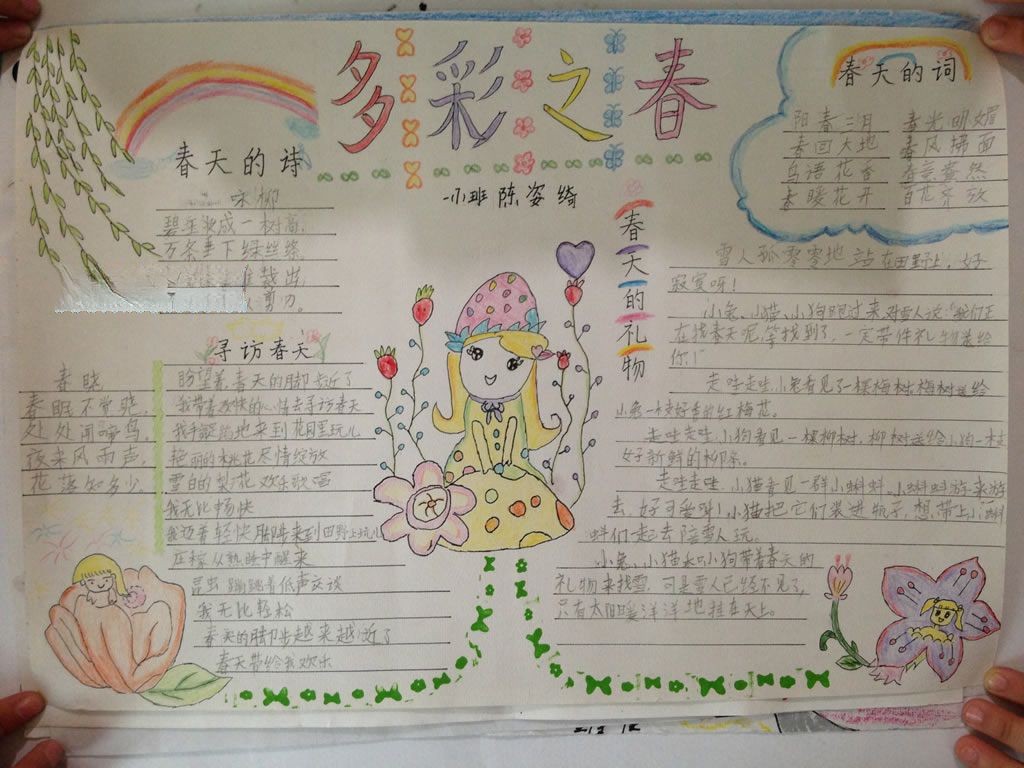 多彩之春
小班 陈姿绮
春天的诗
咏柳
碧玉妆成一树高,
万条垂下绿丝绦。
裁出,
剪刀。
春晓
春眠不觉晓,
处处闻啼鸟。
夜来风雨声,
花落知多少。
寻访春天
盼望着,春天的脚步近了
我带着愉快的心情去寻访春天
地来到花园里玩儿
艳丽的桃花尽情绽放
雪白的梨花欢乐歌唱
我无比畅快
我迈着轻快脚步来到田野上玩儿
庄稼从熟睡中醒来
昆虫蹦跳着低声交谈
我无比轻松
春天的脚步越来越近了
春天带给我欢乐
春天的词
阳春三月 春光明媚
春回大地 春风拂面
鸟语花香 春意盎然
春暖花开 百花齐放
春天的礼物
雪人孤零零地站在田野上,好
寂寞呀!
小兔、小猫、小狗跑过来对雪人说:“我们正
在找春天呢,等找到了,一定带件礼物送给
你!”
走哇走哇,小兔看见了一棵梅树,梅树送给
小兔一支好香的红梅花。
走哇走哇,小狗看见一棵柳树,柳树送给小狗一支
好新鲜的柳条。
走哇走哇,小猫看见一群小蝌蚪,小蝌蚪游来游
去,好可爱呀!小猫把它们装进瓶子,想带上小蝌
蚪们一起去陪雪人玩。
小兔、小猫和小狗带着春天的
礼物来找雪,可是雪人已经不见了,
只有太阳暖洋洋地挂在天上。